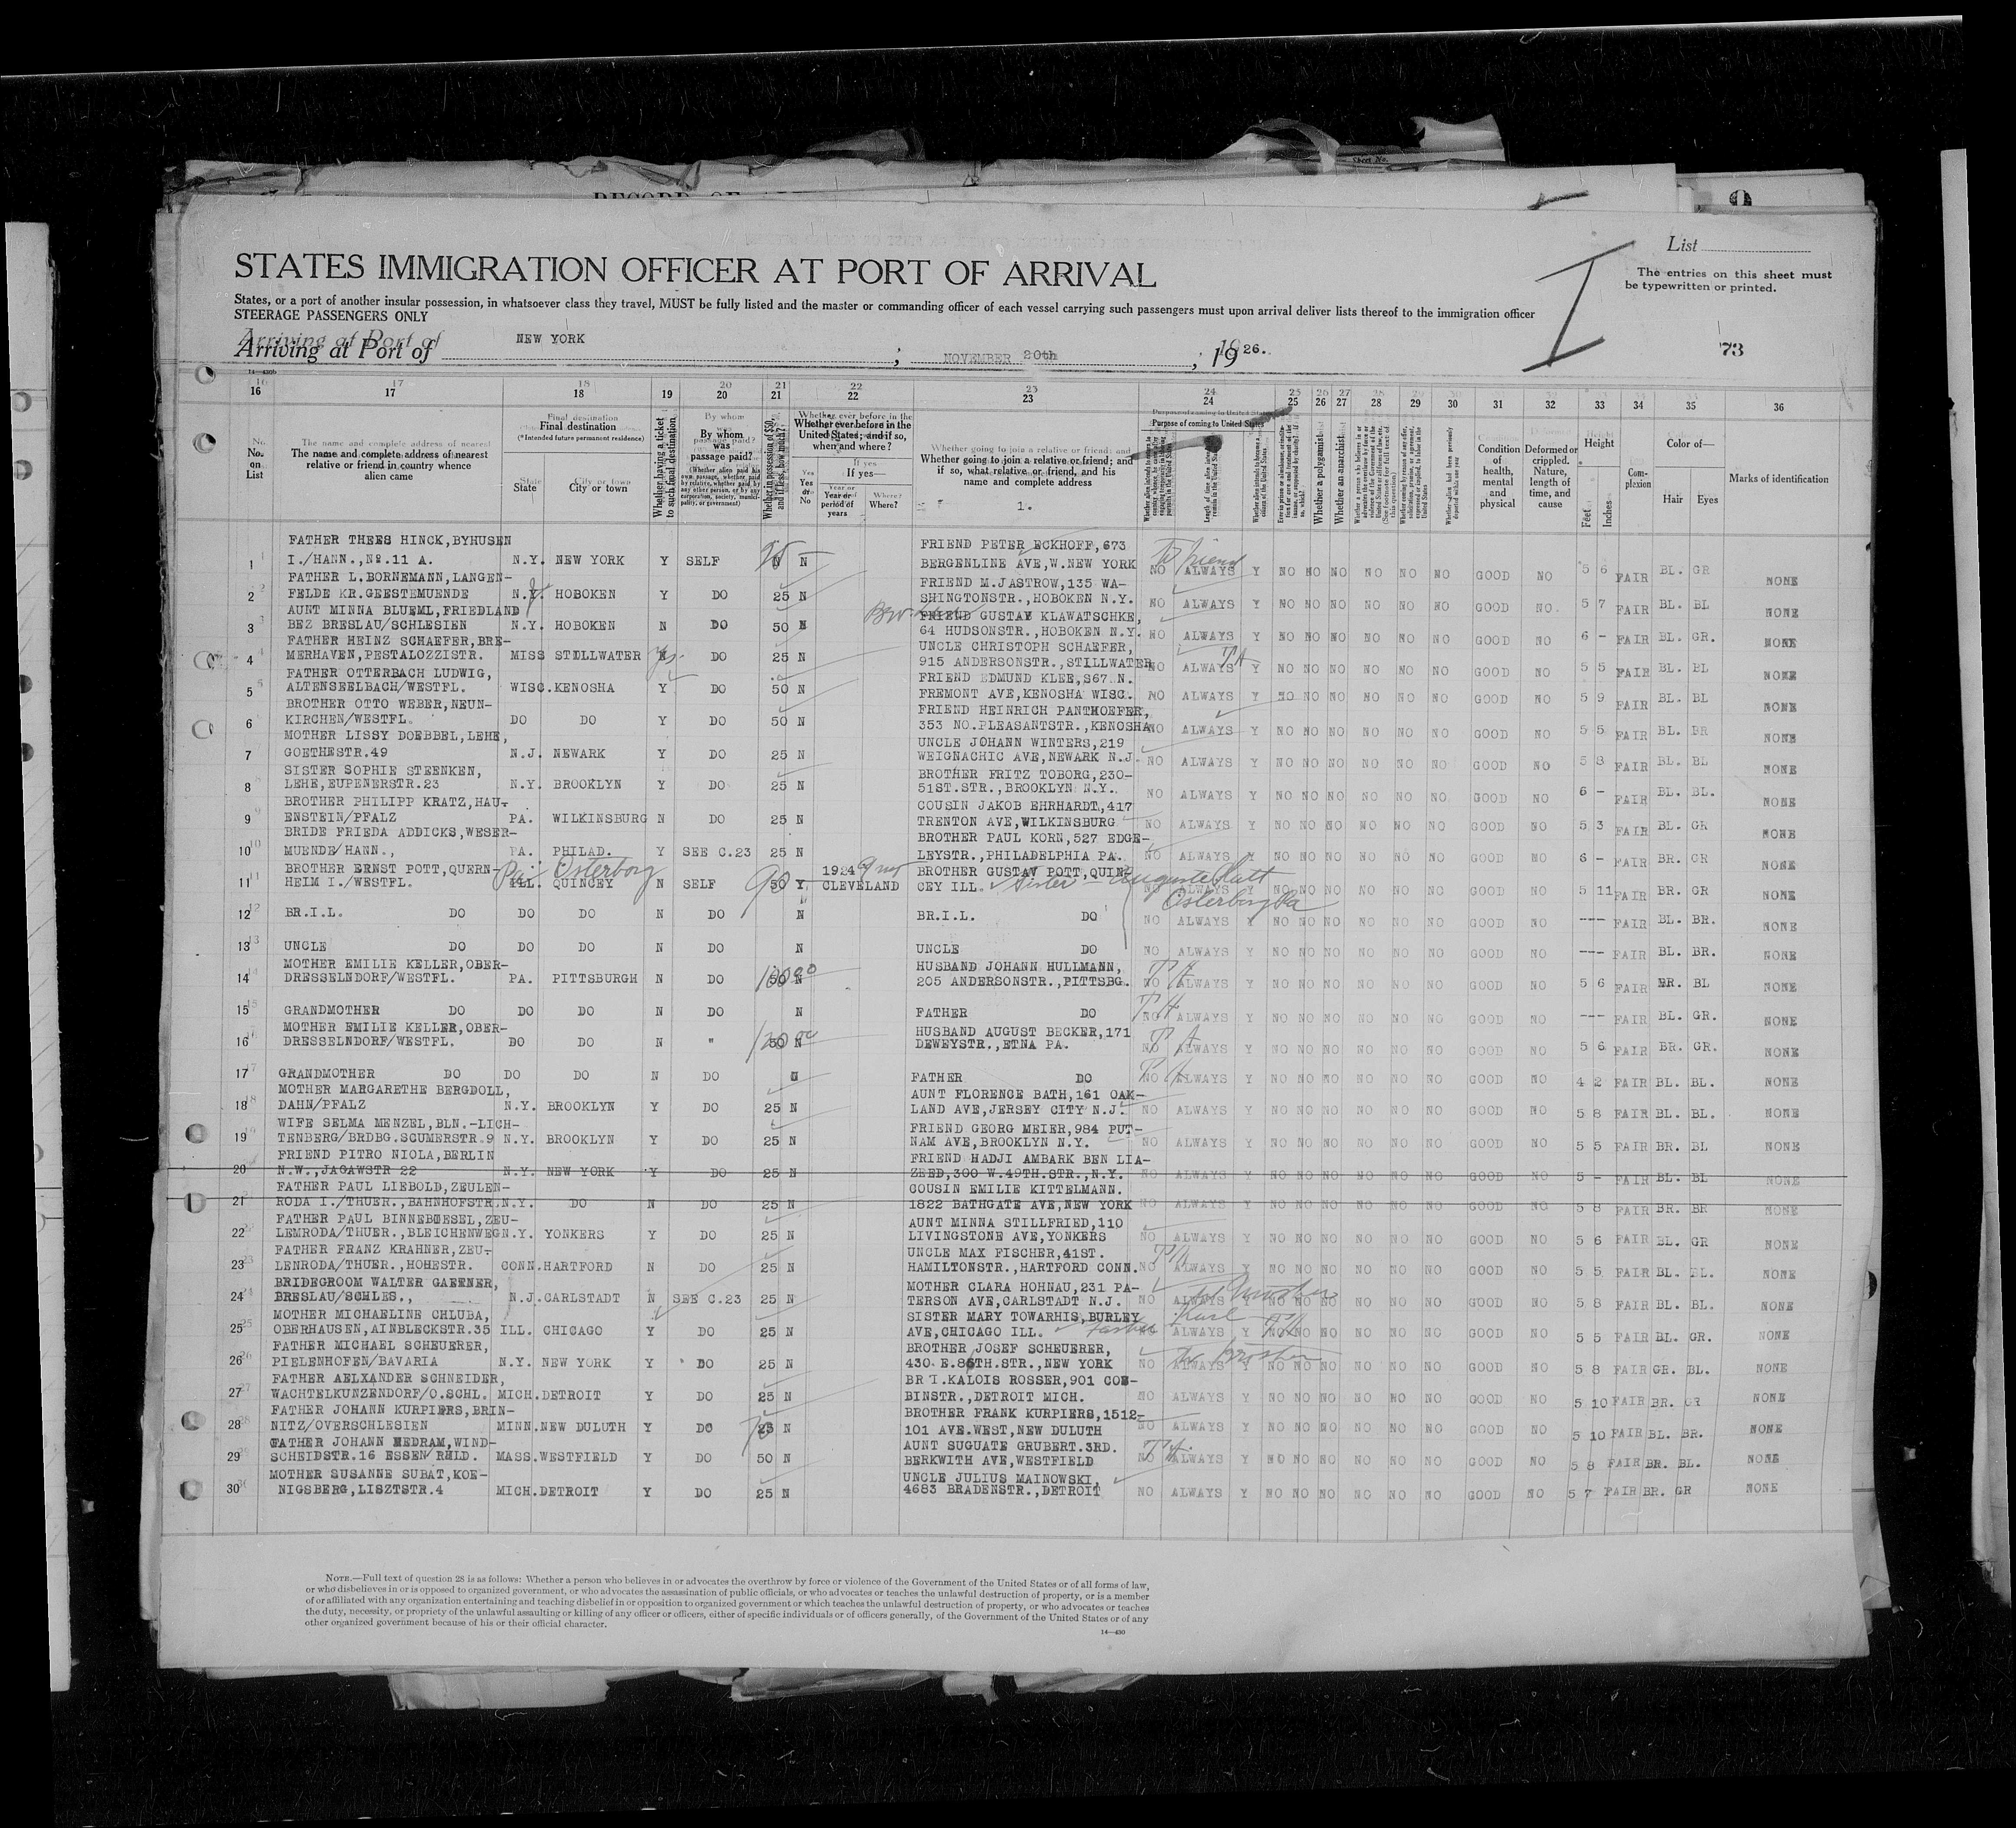 Sheet No.
RECORD OF
9
List
STATES IMMIGRATION OFFICER AT PORT OF ARRIVAL
The entries on this sheet must
be typewritten or printed.
States, or a port of another insular possession, in whatsoever class they travel, MUST be fully listed and the master or commanding officer of each vessel carrying such passengers must upon arrival deliver lists thereof to the immigration officer
STEERAGE PASSENGERS ONLY
I
Arriving at Port of NEW YORK ; NOVEMBER 20th ; 19 26.
73
16 17 18 19 20 21 22 23 24 25 26 27 28 29 30 31 32 33 34 35 36
No. on List
The name and complete address of nearest relative or friend in country whence alien came
Final destination
(*Intended future permanent residence)
State City or town
Whether having a ticket to such final destination
By whom was passage paid?
Whether in possession of $50, and if less, how much?
Whether ever before in the United States; and if so, when and where?
Yes or No If yes— Year or period of years Where?
Whether going to join a relative or friend; and if so, what relative or friend, and his name and complete address
1.
Purpose of coming to United States
Whether a polygamist
Whether an anarchist
Condition of health, mental and physical
Deformed or crippled. Nature, length of time, and cause
Height Feet Inches
Complexion
Color of— Hair Eyes
Marks of identification
FATHER THEES HINCK, BYHUSEN FRIEND PETER ECKHOFF, 673
1 I./HANN., No.11 A. N.Y. NEW YORK Y SELF 25 N BERGENLINE AVE, W.NEW YORK NO ALWAYS Y NO NO NO NO NO NO GOOD NO 5 6 FAIR BL. GR NONE
to friend
FATHER L.BORNEMANN, LANGEN- FRIEND M.JASTROW, 135 WA-
2 FELDE KR.GEESTEMUENDE N.Y. HOBOKEN Y DO 25 N SHINGTONSTR., HOBOKEN N.Y. NO ALWAYS Y NO NO NO NO NO NO GOOD NO. 5 7 FAIR BL. BL NONE
AUNT MINNA BLUEML, FRIEDLAND FRIEND GUSTAV KLAWATSCHKE,
3 BEZ BRESLAU/SCHLESIEN N.Y. HOBOKEN N DO 50 N 64 HUDSONSTR., HOBOKEN N.Y. NO ALWAYS Y NO NO NO NO NO NO GOOD NO 6 - FAIR BL. GR. NONE
FATHER HEINZ SCHAEFER, BRE- UNCLE CHRISTOPH SCHAEFER,
4 MERHAVEN, PESTALOZZISTR. MISS STILLWATER yes DO 25 N 915 ANDERSONSTR., STILLWATER NO ALWAYS Y NO NO NO NO NO NO GOOD NO 5 5 FAIR BL. BL NONE
FATHER OTTERBACH LUDWIG, FRIEND EDMUND KLEE, S67 N.
5 ALTENSEELBACH/WESTFL. WISC. KENOSHA Y DO 50 N FREMONT AVE, KENOSHA WISC. NO ALWAYS Y NO NO NO NO NO NO GOOD NO 5 9 FAIR BL. BL NONE
BROTHER OTTO WEBER, NEUN- FRIEND HEINRICH PANTHOEFER,
6 KIRCHEN/WESTFL. DO DO Y DO 50 N 353 NO.PLEASANTSTR., KENOSHA NO ALWAYS Y NO NO NO NO NO NO GOOD NO 5 5 FAIR BL. BR NONE
MOTHER LISSY DOEBBEL, LEHE, UNCLE JOHANN WINTERS, 219
7 GOETHESTR.49 N.J. NEWARK Y DO 25 N WEIGNACHIC AVE, NEWARK N.J. NO ALWAYS Y NO NO NO NO NO NO GOOD NO 5 8 FAIR BL. BL NONE
SISTER SOPHIE STEENKEN, BROTHER FRITZ TOBORG, 230-
8 LEHE, EUPENERSTR.23 N.Y. BROOKLYN Y DO 25 N 51ST.STR., BROOKLYN N.Y. NO ALWAYS Y NO NO NO NO NO NO. GOOD NO 6 - FAIR BL. BL. NONE
BROTHER PHILIPP KRATZ, HAU- COUSIN JAKOB EHRHARDT, 417
9 ENSTEIN/PFALZ PA. WILKINSBURG N DO 25 N TRENTON AVE, WILKINSBURG NO ALWAYS Y NO NO NO NO NO NO GOOD NO 5 3 FAIR BL. GR NONE
BRIDE FRIEDA ADDICKS, WESER- BROTHER PAUL KORN, 527 EDGE-
10 MUENDE/HANN., PA. PHILAD. Y SEE C.23 25 N LEYSTR., PHILADELPHIA PA. NO ALWAYS Y NO NO NO NO NO NO GOOD NO 6 - FAIR BR. GR NONE
BROTHER ERNST POTT, QUERN- Pa. Osterborg 1924 BROTHER GUSTAV POTT, QUIN-
11 HEIM I./WESTFL. ILL. QUINCEY N SELF 50 Y CLEVELAND CEY ILL. Sister Auguste Platt NO ALWAYS Y NO NO NO NO NO NO GOOD NO 5 11 FAIR BR. GR NONE
Osterborg Pa
12 BR.I.L. DO DO DO N DO N BR.I.L. DO NO ALWAYS Y NO NO NO NO NO NO GOOD NO --- FAIR BL. BR. NONE
13 UNCLE DO DO DO N DO N UNCLE DO NO ALWAYS Y NO NO NO NO NO NO GOOD NO --- FAIR BL. BR. NONE
MOTHER EMILIE KELLER, OBER- HUSBAND JOHANN HULLMANN,
14 DRESSELNDORF/WESTFL. PA. PITTSBURGH N DO 50 N 205 ANDERSONSTR., PITTSBG. NO ALWAYS Y NO NO NO NO NO NO GOOD NO 5 6 FAIR BR. BL NONE
15 GRANDMOTHER DO DO DO N DO N FATHER DO NO ALWAYS Y NO NO NO NO NO NO GOOD NO --- FAIR BL. GR. NONE
MOTHER EMILIE KELLER, OBER- HUSBAND AUGUST BECKER, 171
16 DRESSELNDORF/WESTFL. DO DO N " 50 N DEWEYSTR., ETNA PA. NO ALWAYS Y NO NO NO NO NO NO GOOD NO 5 6 FAIR BR. GR. NONE
17 GRANDMOTHER DO DO DO N DO FATHER DO NO ALWAYS Y NO NO NO NO NO NO GOOD NO 4 2 FAIR BL. BL. NONE
MOTHER MARGARETHE BERGDOLL, AUNT FLORENCE BATH, 161 OAK-
18 DAHN/PFALZ N.Y. BROOKLYN Y DO 25 N LAND AVE, JERSEY CITY N.J. NO ALWAYS Y NO NO NO NO NO NO GOOD NO 5 8 FAIR BL. BL. NONE
WIFE SELMA MENZEL, BLN.-LICH- FRIEND GEORG MEIER, 984 PUT-
19 TENBERG/BRDBG.SCUMERSTR.9 N.Y. BROOKLYN Y DO 25 N NAM AVE, BROOKLYN N.Y. NO ALWAYS Y NO NO NO NO NO NO GOOD NO 5 5 FAIR BR. BL NONE
FRIEND PITRO NIOLA, BERLIN FRIEND HADJI AMBARK BEN LIA-
20 N.W., JAGAWSTR 22 N.Y. NEW YORK Y DO 25 N ZEED, 300 W.49TH.STR., N.Y. NO ALWAYS Y NO NO NO NO NO NO GOOD NO 5 - FAIR BL. BL NONE
FATHER PAUL LIEBOLD, ZEULEN- COUSIN EMILIE KITTELMANN.
21 RODA I./THUER., BAHNHOFSTR. N.Y. DO N DO 25 N 1822 BATHGATE AVE, NEW YORK NO ALWAYS Y NO NO NO NO NO NO GOOD NO 5 8 FAIR BR. BR NONE
FATHER PAUL BINNEBOESEL, ZEU- AUNT MINNA STILLFRIED, 110
22 LEMRODA/THUER., BLEICHENWEG N.Y. YONKERS Y DO 25 N LIVINGSTONE AVE, YONKERS NO ALWAYS Y NO NO NO NO NO NO GOOD NO 5 6 FAIR BL. GR NONE
FATHER FRANZ KRAHNER, ZEU- UNCLE MAX FISCHER, 41ST.
23 LENRODA/THUER., HOHESTR. CONN. HARTFORD N DO 25 N HAMILTONSTR., HARTFORD CONN. NO ALWAYS Y NO NO NO NO NO NO GOOD NO 5 5 FAIR BL. BL. NONE
BRIDEGROOM WALTER GAERNER, MOTHER CLARA HOHNAU, 231 PA-
24 BRESLAU/SCHLES., N.J. CARLSTADT N SEE C.23 25 N TERSON AVE, CARLSTADT N.J. NO ALWAYS Y NO NO NO NO NO NO GOOD NO 5 8 FAIR BL. BL. NONE
MOTHER MICHAELINE CHLUBA, SISTER MARY TOWARHIS, BURLEY
25 OBERHAUSEN, AINBLECKSTR.35 ILL. CHICAGO Y DO 25 N AVE, CHICAGO ILL. NO ALWAYS Y NO NO NO NO NO NO GOOD NO 5 5 FAIR BL. GR. NONE
FATHER MICHAEL SCHEUERER, BROTHER JOSEF SCHEUERER,
26 PIELENHOFEN/BAVARIA N.Y. NEW YORK Y DO 25 N 430 E.86TH.STR., NEW YORK to brother NO ALWAYS Y NO NO NO NO NO NO GOOD NO 5 8 FAIR GR. BL. NONE
FATHER AELXANDER SCHNEIDER, BR I.KALOIS ROSSER, 901 COB-
27 WACHTELKUNZENDORF/O.SCHL. MICH. DETROIT Y DO 25 N BINSTR., DETROIT MICH. NO ALWAYS Y NO NO NO NO NO NO GOOD NO 5 10 FAIR BR. GR NONE
FATHER JOHANN KURPIERS, BRIN- BROTHER FRANK KURPIERS, 1512-
28 NITZ/OVERSCHLESIEN MINN. NEW DULUTH Y DO 25 N 101 AVE.WEST, NEW DULUTH NO ALWAYS Y NO NO NO NO NO NO GOOD NO 5 10 FAIR BL. BR. NONE
FATHER JOHANN MEDRAM, WIND- AUNT SUGUATE GRUBERT.3RD.
29 SCHEIDSTR.16 ESSEN/RHLD. MASS. WESTFIELD Y DO 50 N BERKWITH AVE, WESTFIELD NO ALWAYS Y NO NO NO NO NO NO GOOD NO 5 8 FAIR BR. BL. NONE
MOTHER SUSANNE SUBAT, KOE- UNCLE JULIUS MAINOWSKI,
30 NIGSBERG, LISZTSTR.4 MICH. DETROIT Y DO 25 N 4683 BRADENSTR., DETROIT NO ALWAYS Y NO NO NO NO NO NO GOOD NO 5 7 FAIR BR. GR NONE
NOTE.—Full text of question 28 is as follows: Whether a person who believes in or advocates the overthrow by force or violence of the Government of the United States or of all forms of law,
or who disbelieves in or is opposed to organized government, or who advocates the assassination of public officials, or who advocates or teaches the unlawful destruction of property, or is a member
of or affiliated with any organization entertaining and teaching disbelief in or opposition to organized government or which teaches the unlawful destruction of property, or who advocates or teaches
the duty, necessity, or propriety of the unlawful assaulting or killing of any officer or officers, either of specific individuals or of officers generally, of the Government of the United States or of any
other organized government because of his or their official character.
14—430